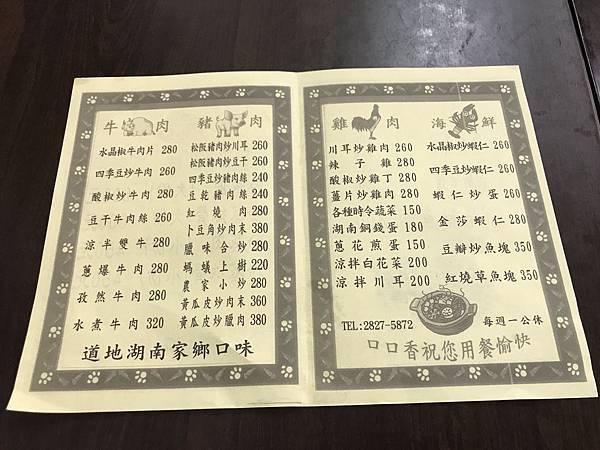 牛肉
水晶椒牛肉片 280
四季豆炒牛肉 260
酸椒炒牛肉 280
豆干牛肉絲 260
涼半雙牛 280
蔥爆牛肉 280
孜然牛肉 280
水煮牛肉 320
豬肉
松阪豬肉炒川耳 260
松阪豬肉炒豆干 260
四季豆炒豬肉絲 240
豆乾豬肉絲 240
紅燒肉 280
卜豆角炒肉末 380
臘味合炒 280
螞蟻上樹 220
農家小炒 280
黃瓜皮炒肉末 360
黃瓜皮炒臘肉 380
道地湖南家鄉口味
雞肉
川耳炒雞肉 260
辣子雞 280
酸椒炒雞丁 280
薑片炒雞肉 280
各種時令蔬菜 150
湖南銅錢蛋 180
蔥花煎蛋 150
涼拌白花菜 200
涼拌川耳 200
海鮮
水晶椒炒蝦仁 260
四季豆炒蝦仁 260
蝦仁炒蛋 260
金莎蝦仁 280
豆瓣炒魚塊 350
紅燒草魚塊 350
TEL:2827-5872
每週一公休
口口香祝您用餐愉快